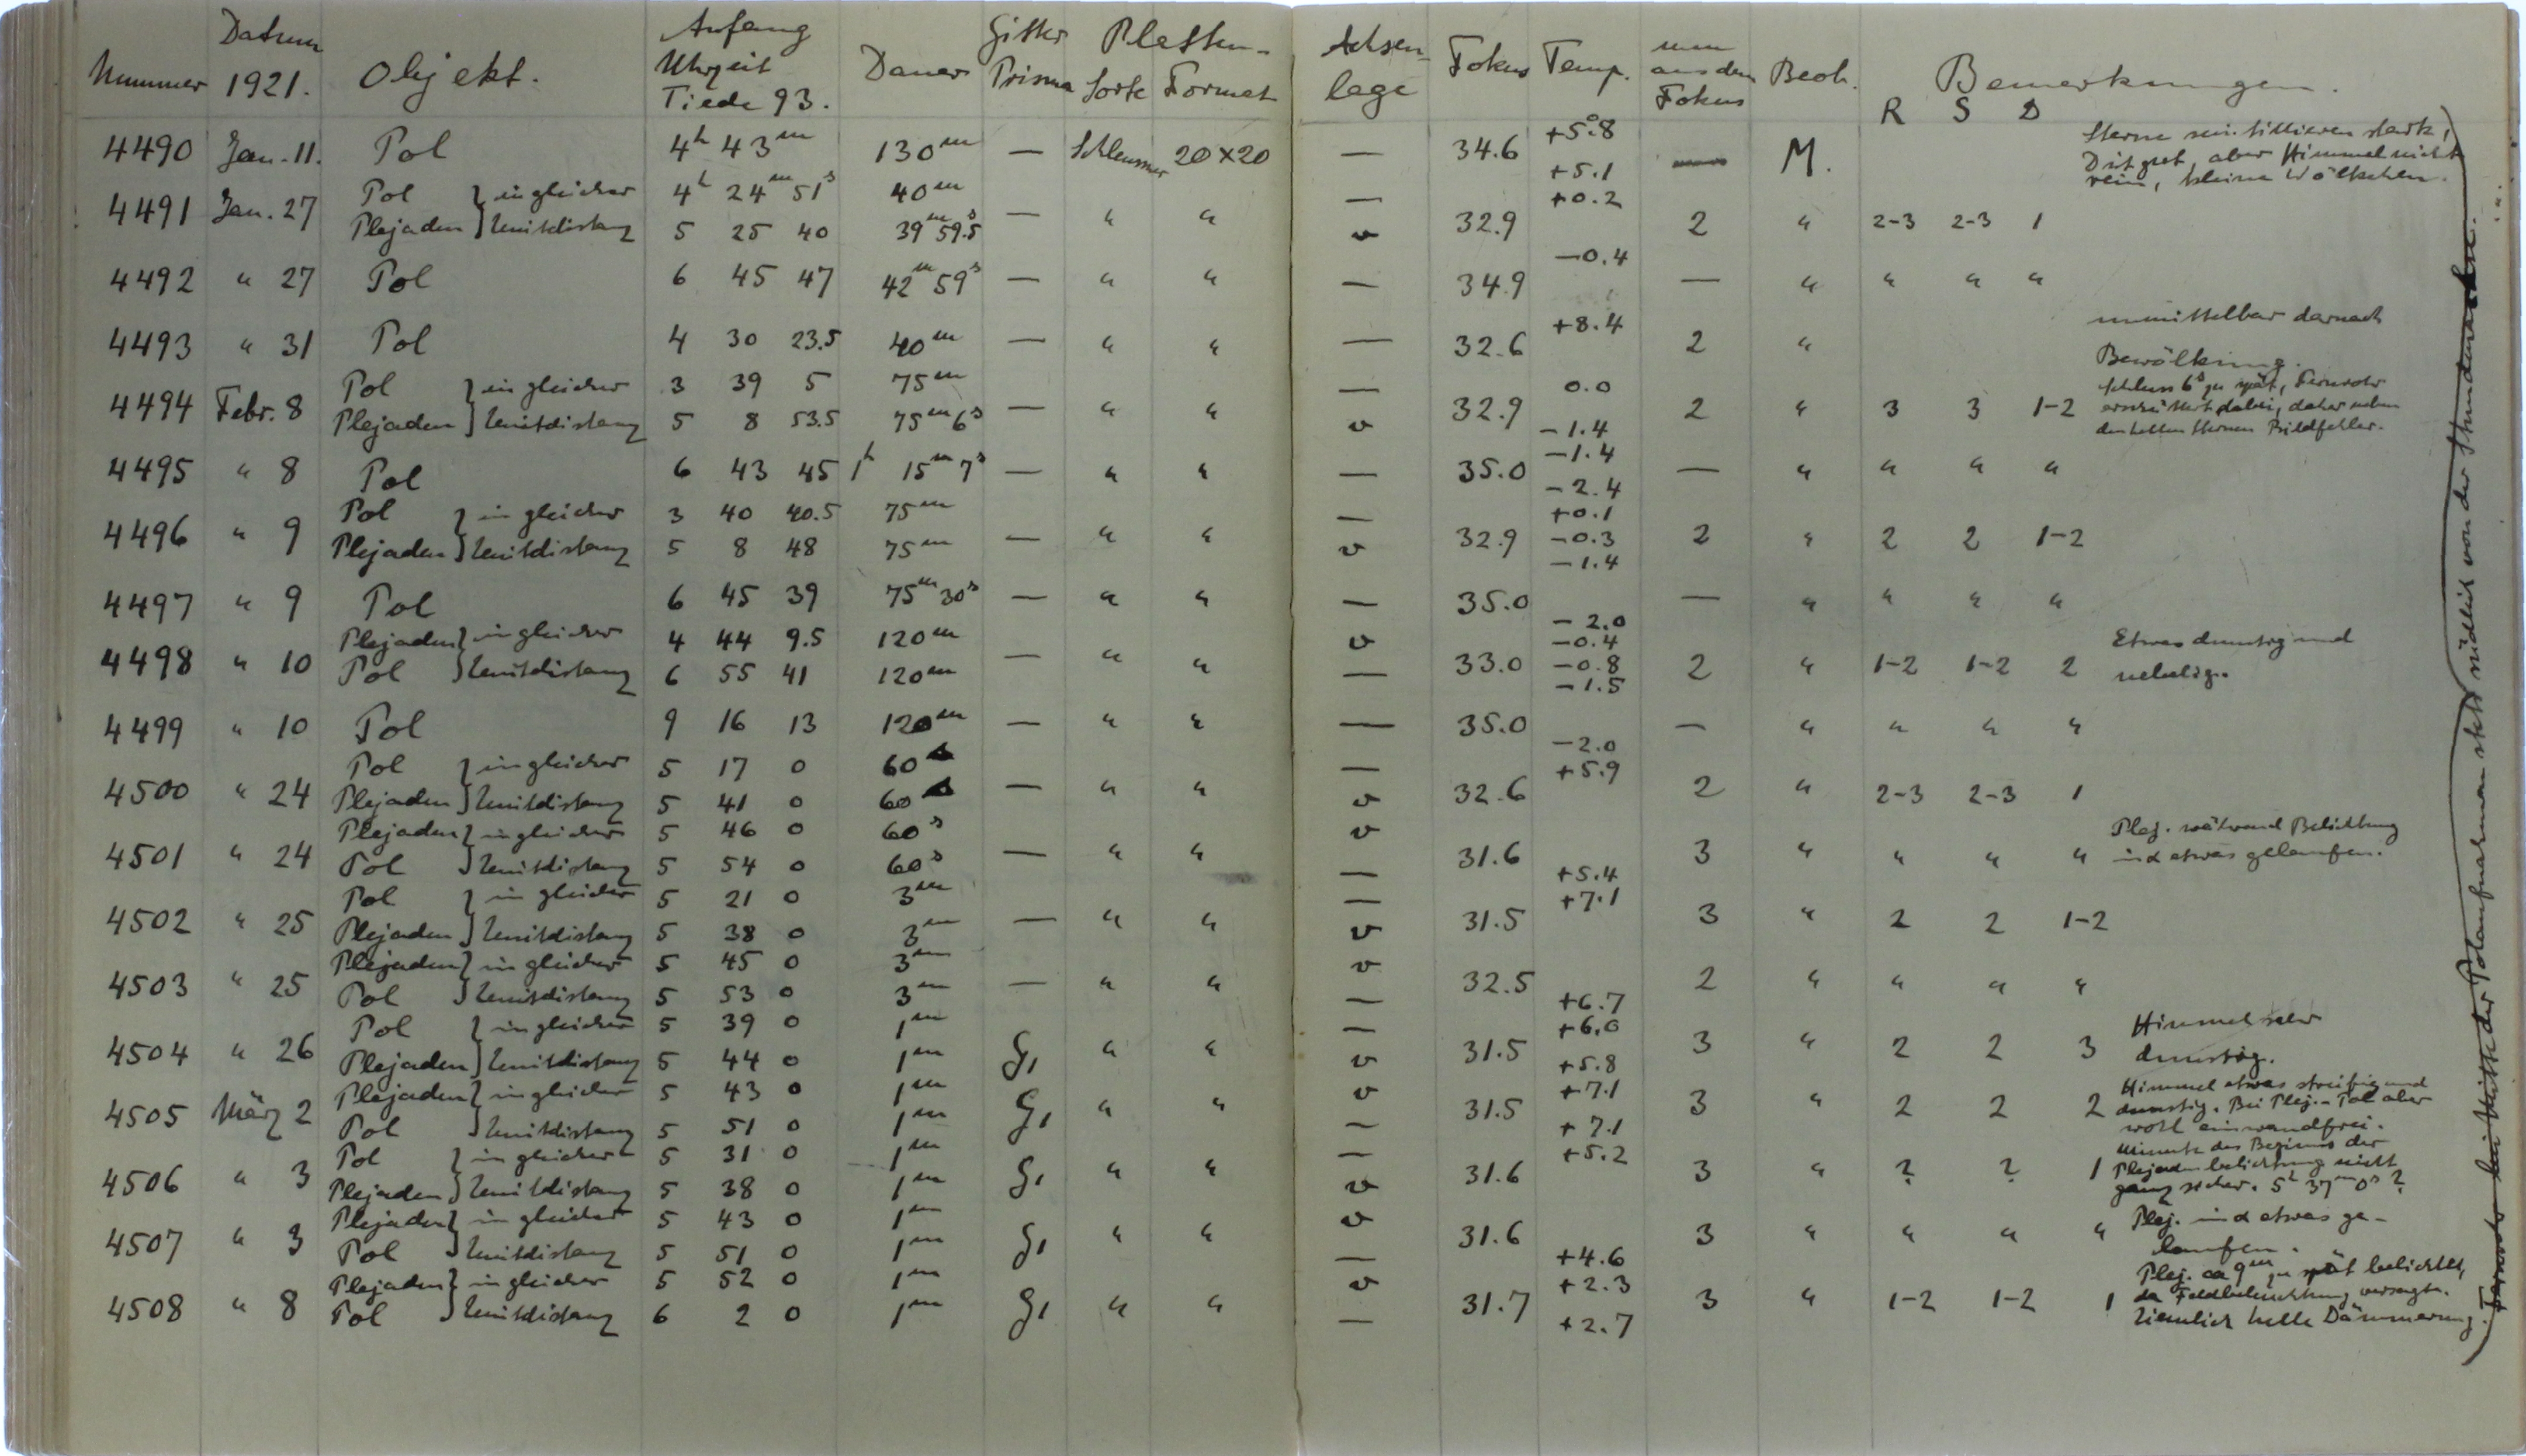 Nummer Datum 1921. Objekt. Anfang Uhrzeit Tiede 93. Dauer Gitter Prisma Platten- Sorte Format Achsen- lage Fokus Temp. mm aus dem Fokus Beob. Bemerkungen.
R S D
4490 Jan. 11. Pol 4h 43m 130m — Schleussner 20×20 — 34.6 +5°.8 +5.1 — M. Sterne szintillieren stark,
D ist gut, aber Himmel nicht
rein, kleine Wölkchen.
4491 Jan. 27 Pol } in gleicher 4h 24m 51s 40m — " " — 32.9 +0.2 2 " 2-3 2-3 1
Plejaden } Zenitdistanz 5 25 40 39m 59.s5 v
4492 " 27 Pol 6 45 47 42m 59s — " " — 34.9 −0.4 — " " " "
4493 " 31 Pol 4 30 23.5 40m — " " — 32.6 +8.4 2 " unmittelbar darnach
Bewölkung.
4494 Febr. 8 Pol } in gleicher 3 39 5 75m — " " — 32.9 0.0 2 " 3 3 1-2 Schluss 6s zu spät, Fernrohr
Plejaden } Zenitdistanz 5 8 53.5 75m 6s v −1.4 erschüttert dabei, daher neben
den hellen Sternen Bildfehler.
4495 " 8 Pol 6 43 45 1h 15m 7s — " " — 35.0 −1.4 −2.4 — " " " "
4496 " 9 Pol } in gleicher 3 40 40.5 75m — " " — 32.9 +0.1 −0.3 2 " 2 2 1-2
Plejaden } Zenitdistanz 5 8 48 75m v −1.4
4497 " 9 Pol 6 45 39 75m 30s — " " — 35.0 −2.0 — " " " "
4498 " 10 Plejaden } in gleicher 4 44 9.5 120m — " " v 33.0 −0.4 −0.8 2 " 1-2 1-2 2 Etwas dunstig und
Pol } Zenitdistanz 6 55 41 120m — −1.5 nebelig.
4499 " 10 Pol 9 16 13 120m — " " — 35.0 −2.0 — " " " "
4500 " 24 Pol } in gleicher 5 17 0 60s — " " — 32.6 +5.9 2 " 2-3 2-3 1
Plejaden } Zenitdistanz 5 41 0 60s v
4501 " 24 Plejaden } in gleicher 5 46 0 60s — " " v 31.6 3 " " " " Plej. während Belichtung
Pol } Zenitdistanz 5 54 0 60s — +5.4 in α etwas gelaufen.
4502 " 25 Pol } in gleicher 5 21 0 3m — " " — 31.5 +7.1 3 " 2 2 1-2
Plejaden } Zenitdistanz 5 38 0 3m v
4503 " 25 Plejaden } in gleicher 5 45 0 3m — " " v 32.5 2 " " " "
Pol } Zenitdistanz 5 53 0 3m — +6.7
4504 " 26 Pol } in gleicher 5 39 0 1m G1 " " — 31.5 +6.0 3 " 2 2 3 Himmel sehr
Plejaden } Zenitdistanz 5 44 0 1m v +5.8 dunstig.
4505 März 2 Plejaden } in gleicher 5 43 0 1m G1 " " v 31.5 +7.1 3 " 2 2 2 Himmel etwas streifig und
dunstig. Bei Plej.-Pol aber
Pol } Zenitdistanz 5 51 0 1m — +7.1 wohl einwandfrei.
4506 " 3 Pol } in gleicher 5 31 0 1m G1 " " — 31.6 +5.2 3 " ? ? 1 Minute des Beginns der
Plejaden } Zenitdistanz 5 38 0 1m v Plejadenbelichtung nicht
ganz sicher. 5h 37m 0s ?
4507 " 3 Plejaden } in gleicher 5 43 0 1m G1 " " v 31.6 3 " " " " Plej. in α etwas ge-
Pol } Zenitdistanz 5 51 0 1m — +4.6 laufen.
4508 " 8 Plejaden } in gleicher 5 52 0 1m G1 " " v 31.7 +2.3 3 " 1-2 1-2 1 Plej. ca 9m zu spät belichtet,
da Feldbeleuchtung versagte.
Pol } Zenitdistanz 6 2 0 1m — +2.7 Ziemlich helle Dämmerung.
(Fernrohr bei Mitte der Polaufnahmen stets südlich von der Stundenachse.)